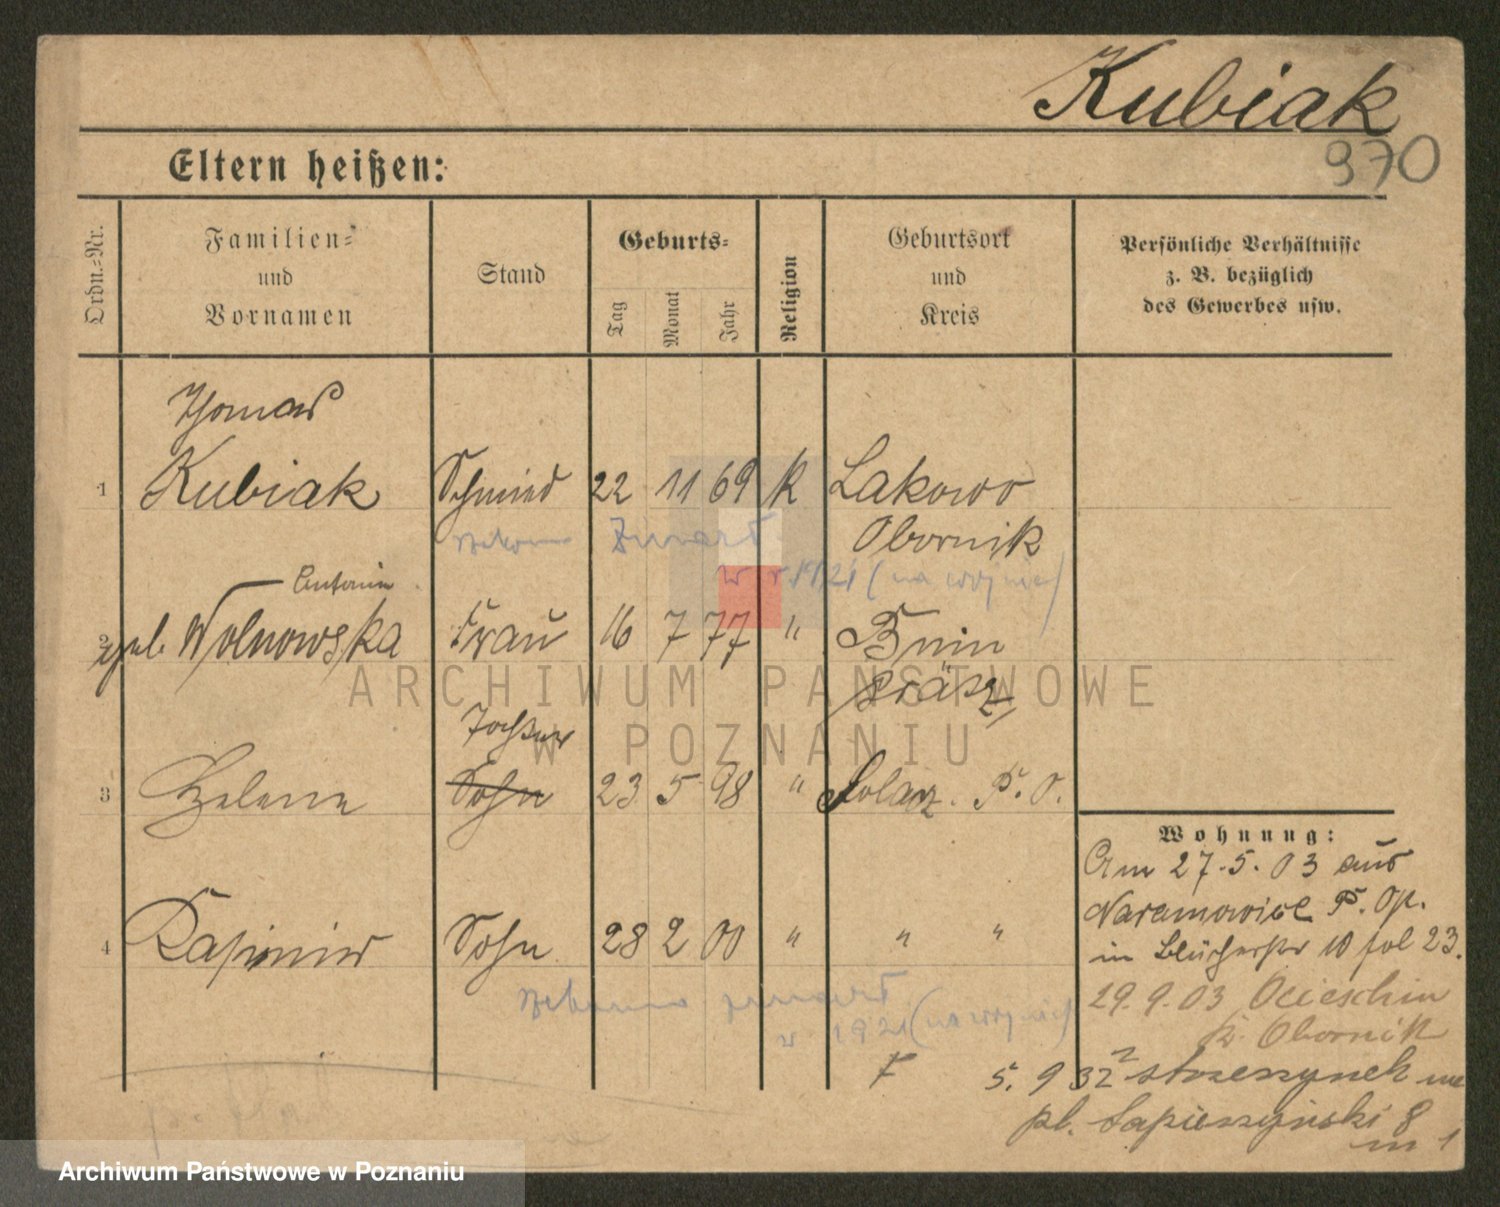 Kubiak
970
Eltern heißen:
Ordn.-Nr.
Familien-
und
Vornamen
Stand
Geburts-
Tag
Monat
Jahr
Religion
Geburtsort
und
Kreis
Persönliche Verhältnisse
z. B. bezüglich
des Gewerbes usw.
Thomas
1 Kubiak Schmied 22 11 69 K Lakowo
Obornik
zmarł
w r. 1921 (na wojnie)
Antonie
2 geb. Wolnowska Frau 16 7 77 " Bnin
Tochter
3 Helene Sohn 23 5 98 " Solacz. P. O.
Wohnung:
Am 27.5.03 aus
Naramowice P. Op.
4 Kasimir Sohn 28 2 00 " " "
in Blücherstr 10 fol 23.
29.9.03 Ocieschin
K. Obornik
w 1921 (na wojnie)
5. 9 32 z Strzeszynek
pl. Sapieżyński 8
m 1
ARCHIWUM PAŃSTWOWE
W POZNANIU
Archiwum Państwowe w Poznaniu